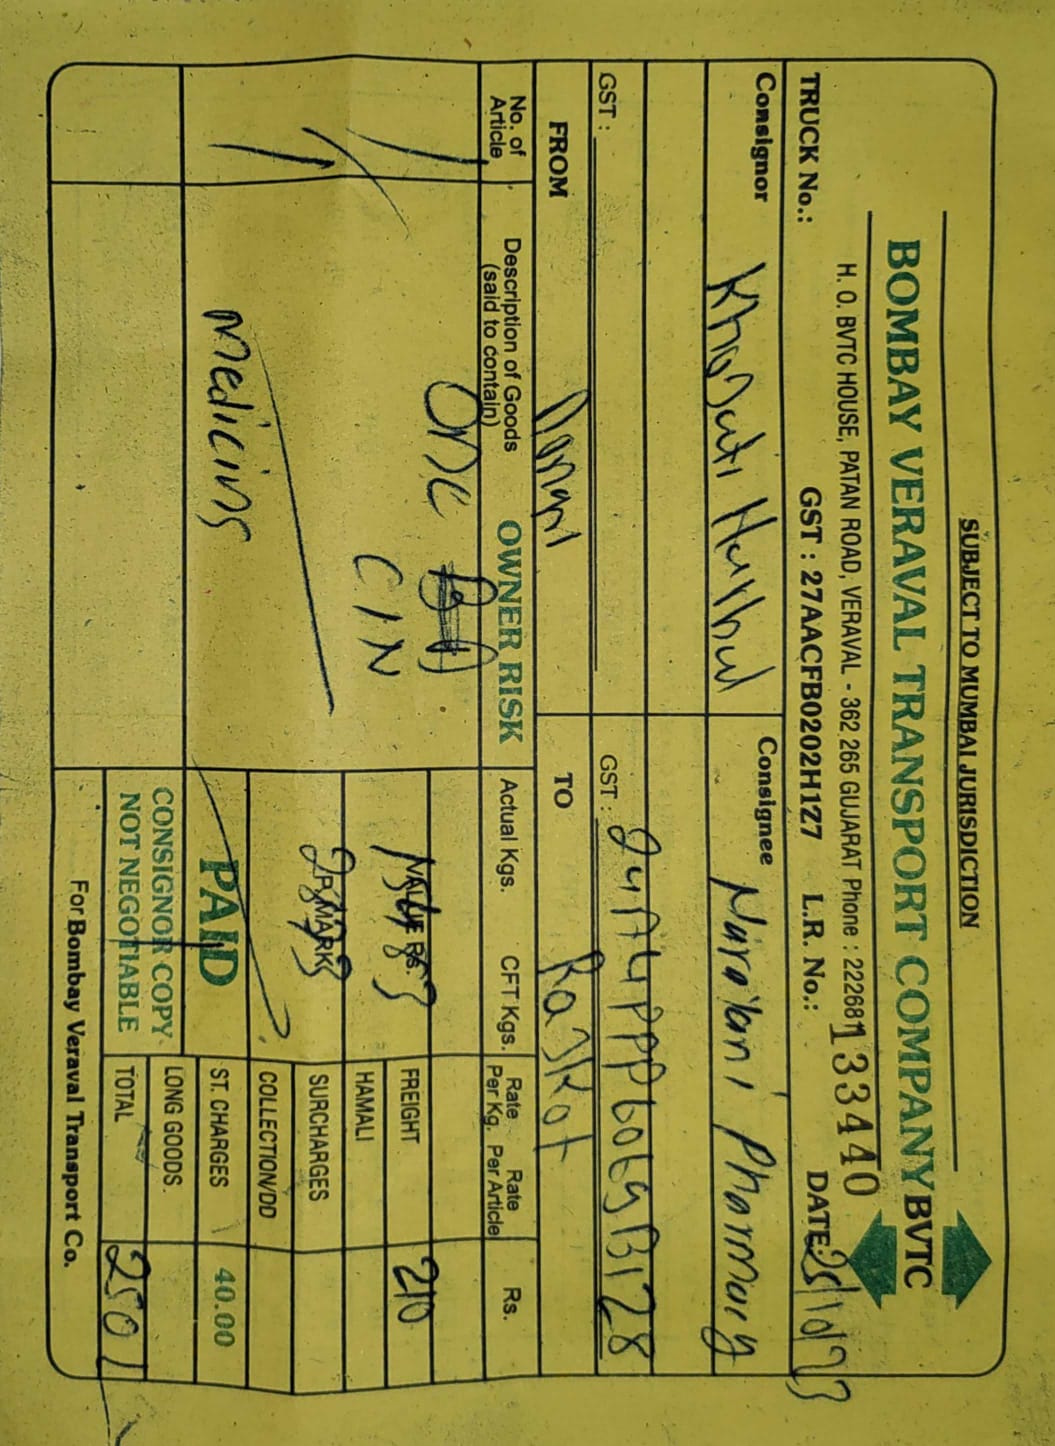 SUBJECT TO MUMBAI JURISDICTION
BOMBAY VERAVAL TRANSPORT COMPANY BVTC
H. O. BVTC HOUSE, PATAN ROAD, VERAVAL - 362 265 GUJARAT Phone : 222681
133440
TRUCK No.: GST : 27AACFB0202H1Z7 L.R. No.: DATE:
Consignor Consignee Narayani Pharmacy
GST : GST :
FROM TO Rajkot
No. of Article Description of Goods (said to contain) OWNER RISK Actual Kgs. CFT Kgs. Rate Per Kg. Rate Per Article Rs.
1 ONE
CIN
VALUE Rs. FREIGHT 210
HAMALI
P. MARK SURCHARGES
COLLECTION/DD
1 Medicins PAID ST. CHARGES 40.00
CONSIGNOR COPY LONG GOODS
NOT NEGOTIABLE TOTAL 250/
For Bombay Veraval Transport Co.